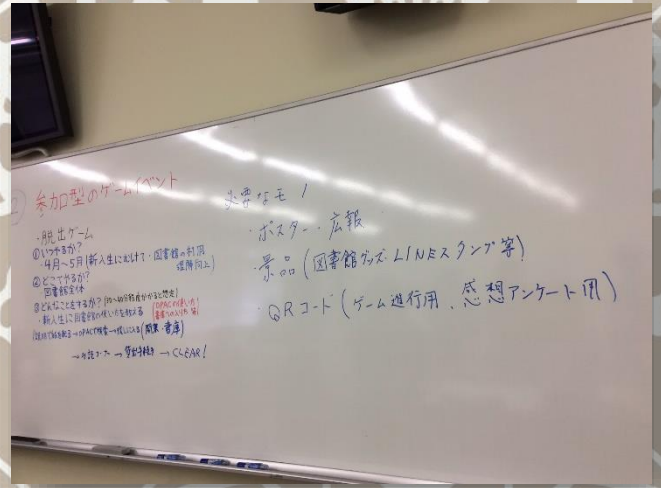 ② 参加型のゲームイベント
・脱出ゲーム
①いつやるか?
・4月～5月(新入生にむけて・図書館の利用
理解向上)
②どこでやるか?
図書館全体
③どんなことをするか?(30～40分程度かかると想定)
・新入生に図書館の使い方を教える
(OPACの使い方
書庫への入り方 等)
→OPACで検索→探しに入る(開架・書庫)
→ →貸出手続き→CLEAR!
必要なモノ
・ポスター・広報
・景品(図書館グッズ・LINEスタンプ等)
・QRコード(ゲーム進行用、感想アンケート用)